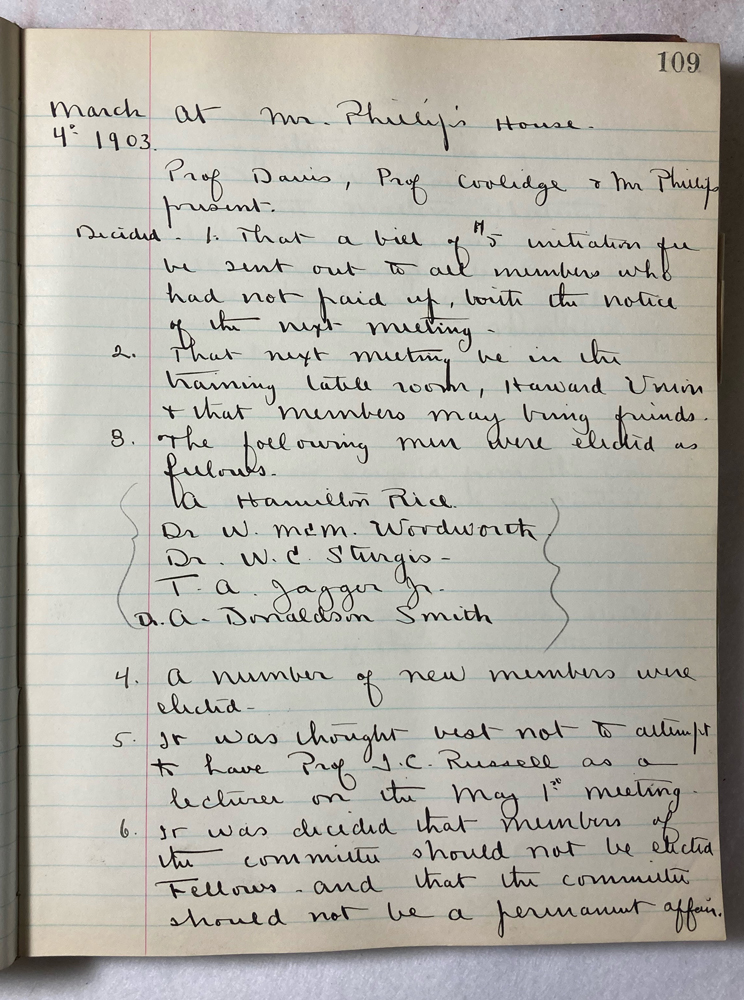 109
March at Mr. Phillip's House.
4th 1903.
Prof Davis, Prof Coolidge & Mr Phillips
present.
Decided. 1. That a bill of $5 initiation fee
be sent out to all members who
had not paid up, with the notice
of the next meeting.
2. That next meeting be in the
training table room, Harvard Union
& that members may bring friends.
3. The following men were elected as
fellows.
A Hamilton Rice.
Dr W. McM. Woodworth
Dr. W. C. Sturgis -
T. A. Jagger Jr.
Dr. A. Donaldson Smith
4. A number of new members were
elected -
5. It was thought best not to attempt
to have Prof I. C. Russell as a
lecturer on the May 1st meeting.
6. It was decided that members of
the committee should not be elected
Fellows - and that the committee
should not be a permanent affair.